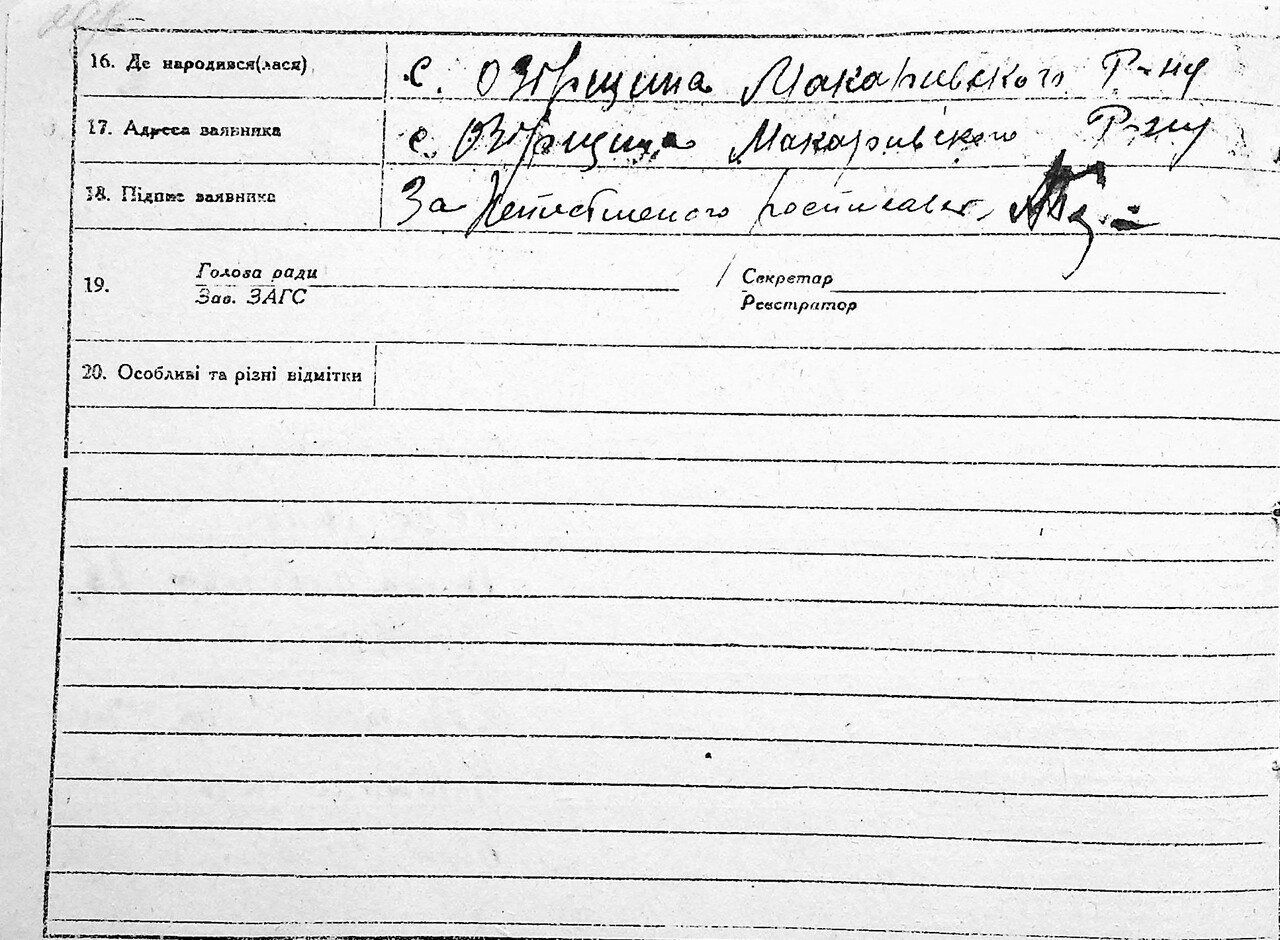 16. Де народився(лася) с. Озірщина Макарівского Р-ну
17. Адреса заявника с. Озірщина Макарівского Р-ну
18. Підпис заявника За Неписьменого росписавсь
19. Голова ради Секретар
Зав. ЗАГС Реєстратор
20. Особливі та різні відмітки